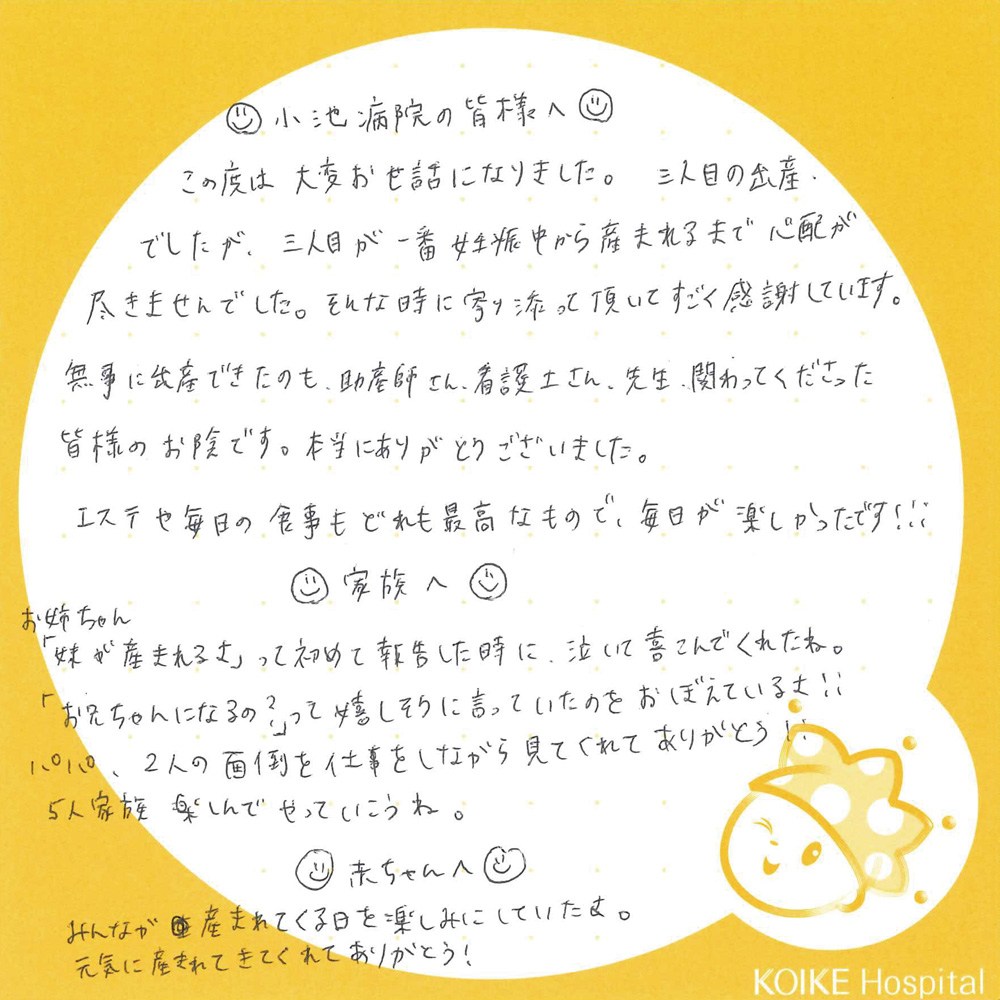 小池病院の皆様へ
この度は 大変お世話になりました。 三人目の出産
でしたが、三人目が一番妊娠中から産まれるまで心配が
尽きませんでした。そんな時に寄り添って頂いてすごく感謝しています。
無事に出産できたのも、助産師さん、看護士さん、先生、関わってくださった
皆様のお陰です。本当にありがとうございました。
エステや毎日の食事もどれも最高なもので、毎日が楽しかったです!!!
家族へ
お姉ちゃん
「妹が産まれるよ」って初めて報告した時に、泣いて喜こんでくれたね。
「お兄ちゃんになるの?」って嬉しそうに言っていたのをおぼえているよ!!
パパ、2人の面倒を仕事をしながら見てくれてありがとう!!
5人家族 楽しんでやっていこうね。
赤ちゃんへ
みんなが産まれてくる日を楽しみにしていたよ。
元気に産まれてきてくれてありがとう!
KOIKE Hospital